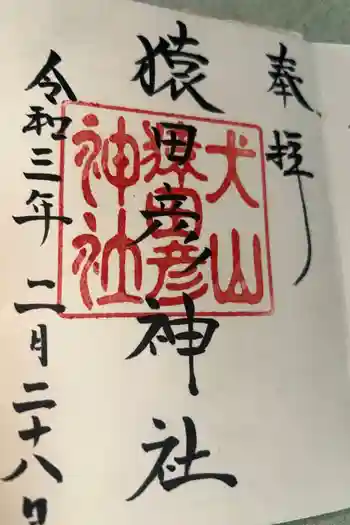 奉拝
猿田彦神社
犬山
猿田彦
神社
令和三年 二月二十八日